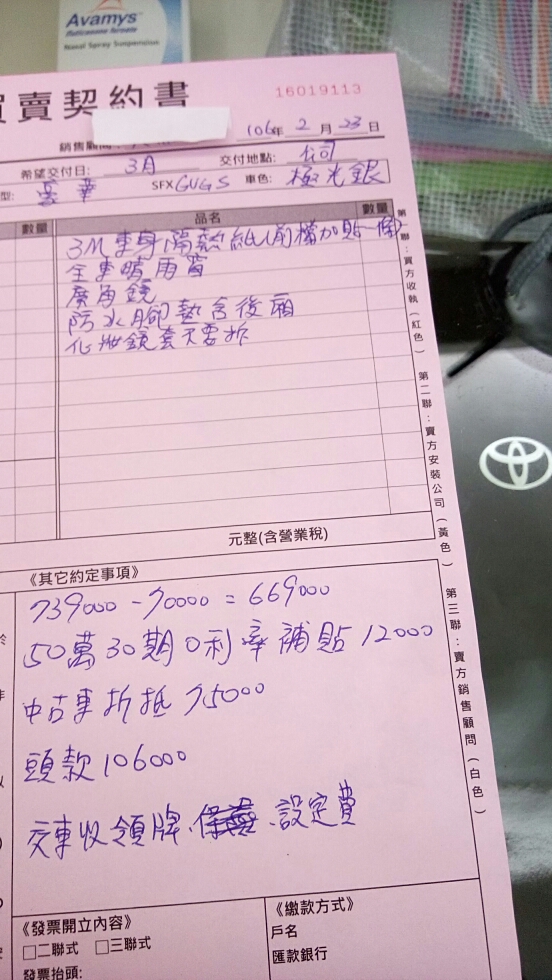 Avamys™
fluticasone furoate
Nasal Spray Suspension
買賣契約書
16019113
106年 2 月 23 日
銷售顧問:
希望交付日: 3月 交付地點: 公司
型: 豪華 SFX GUGS 車色: 極光銀
數量 品名 數量
3M車身隔熱紙(前檔加貼一條)
全車晴雨窗
廣角鏡
防水腳墊含後廂
化妝鏡套不要拆
元整(含營業稅)
《其它約定事項》
739000 - 70000 = 669000
50萬30期0利率補貼12000
中古車折抵75000
頭款106000
交車收領牌、設定費
《發票開立內容》
□二聯式 □三聯式
發票抬頭:
《繳款方式》
戶名
匯款銀行
第一聯:買方收執(紅色) 第二聯:賣方安裝公司(黃色) 第三聯:賣方銷售顧問(白色)